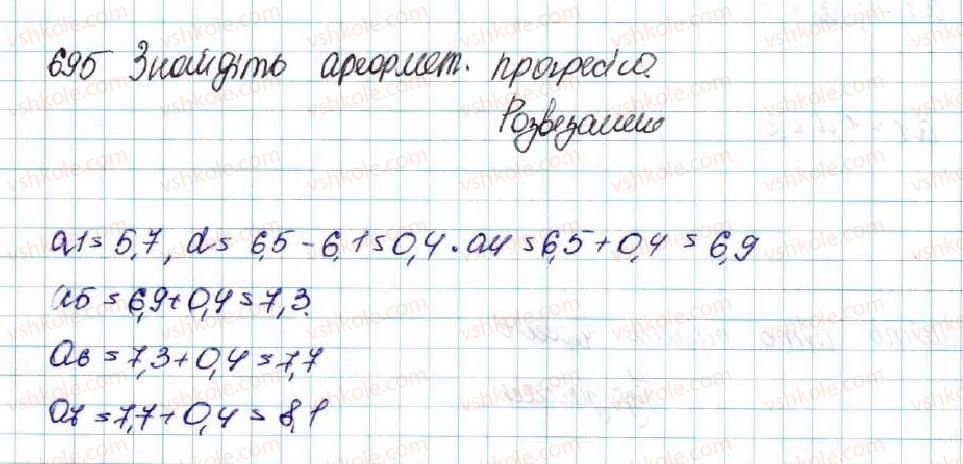 695 Знайдіть ареормет. прогресію.
Розвезання
a1 = 5,7, d = 6,5 - 6,1 = 0,4. a4 = 6,5 + 0,4 = 6,9
a5 = 6,9 + 0,4 = 7,3.
a6 = 7,3 + 0,4 = 7,7
a7 = 7,7 + 0,4 = 8,1